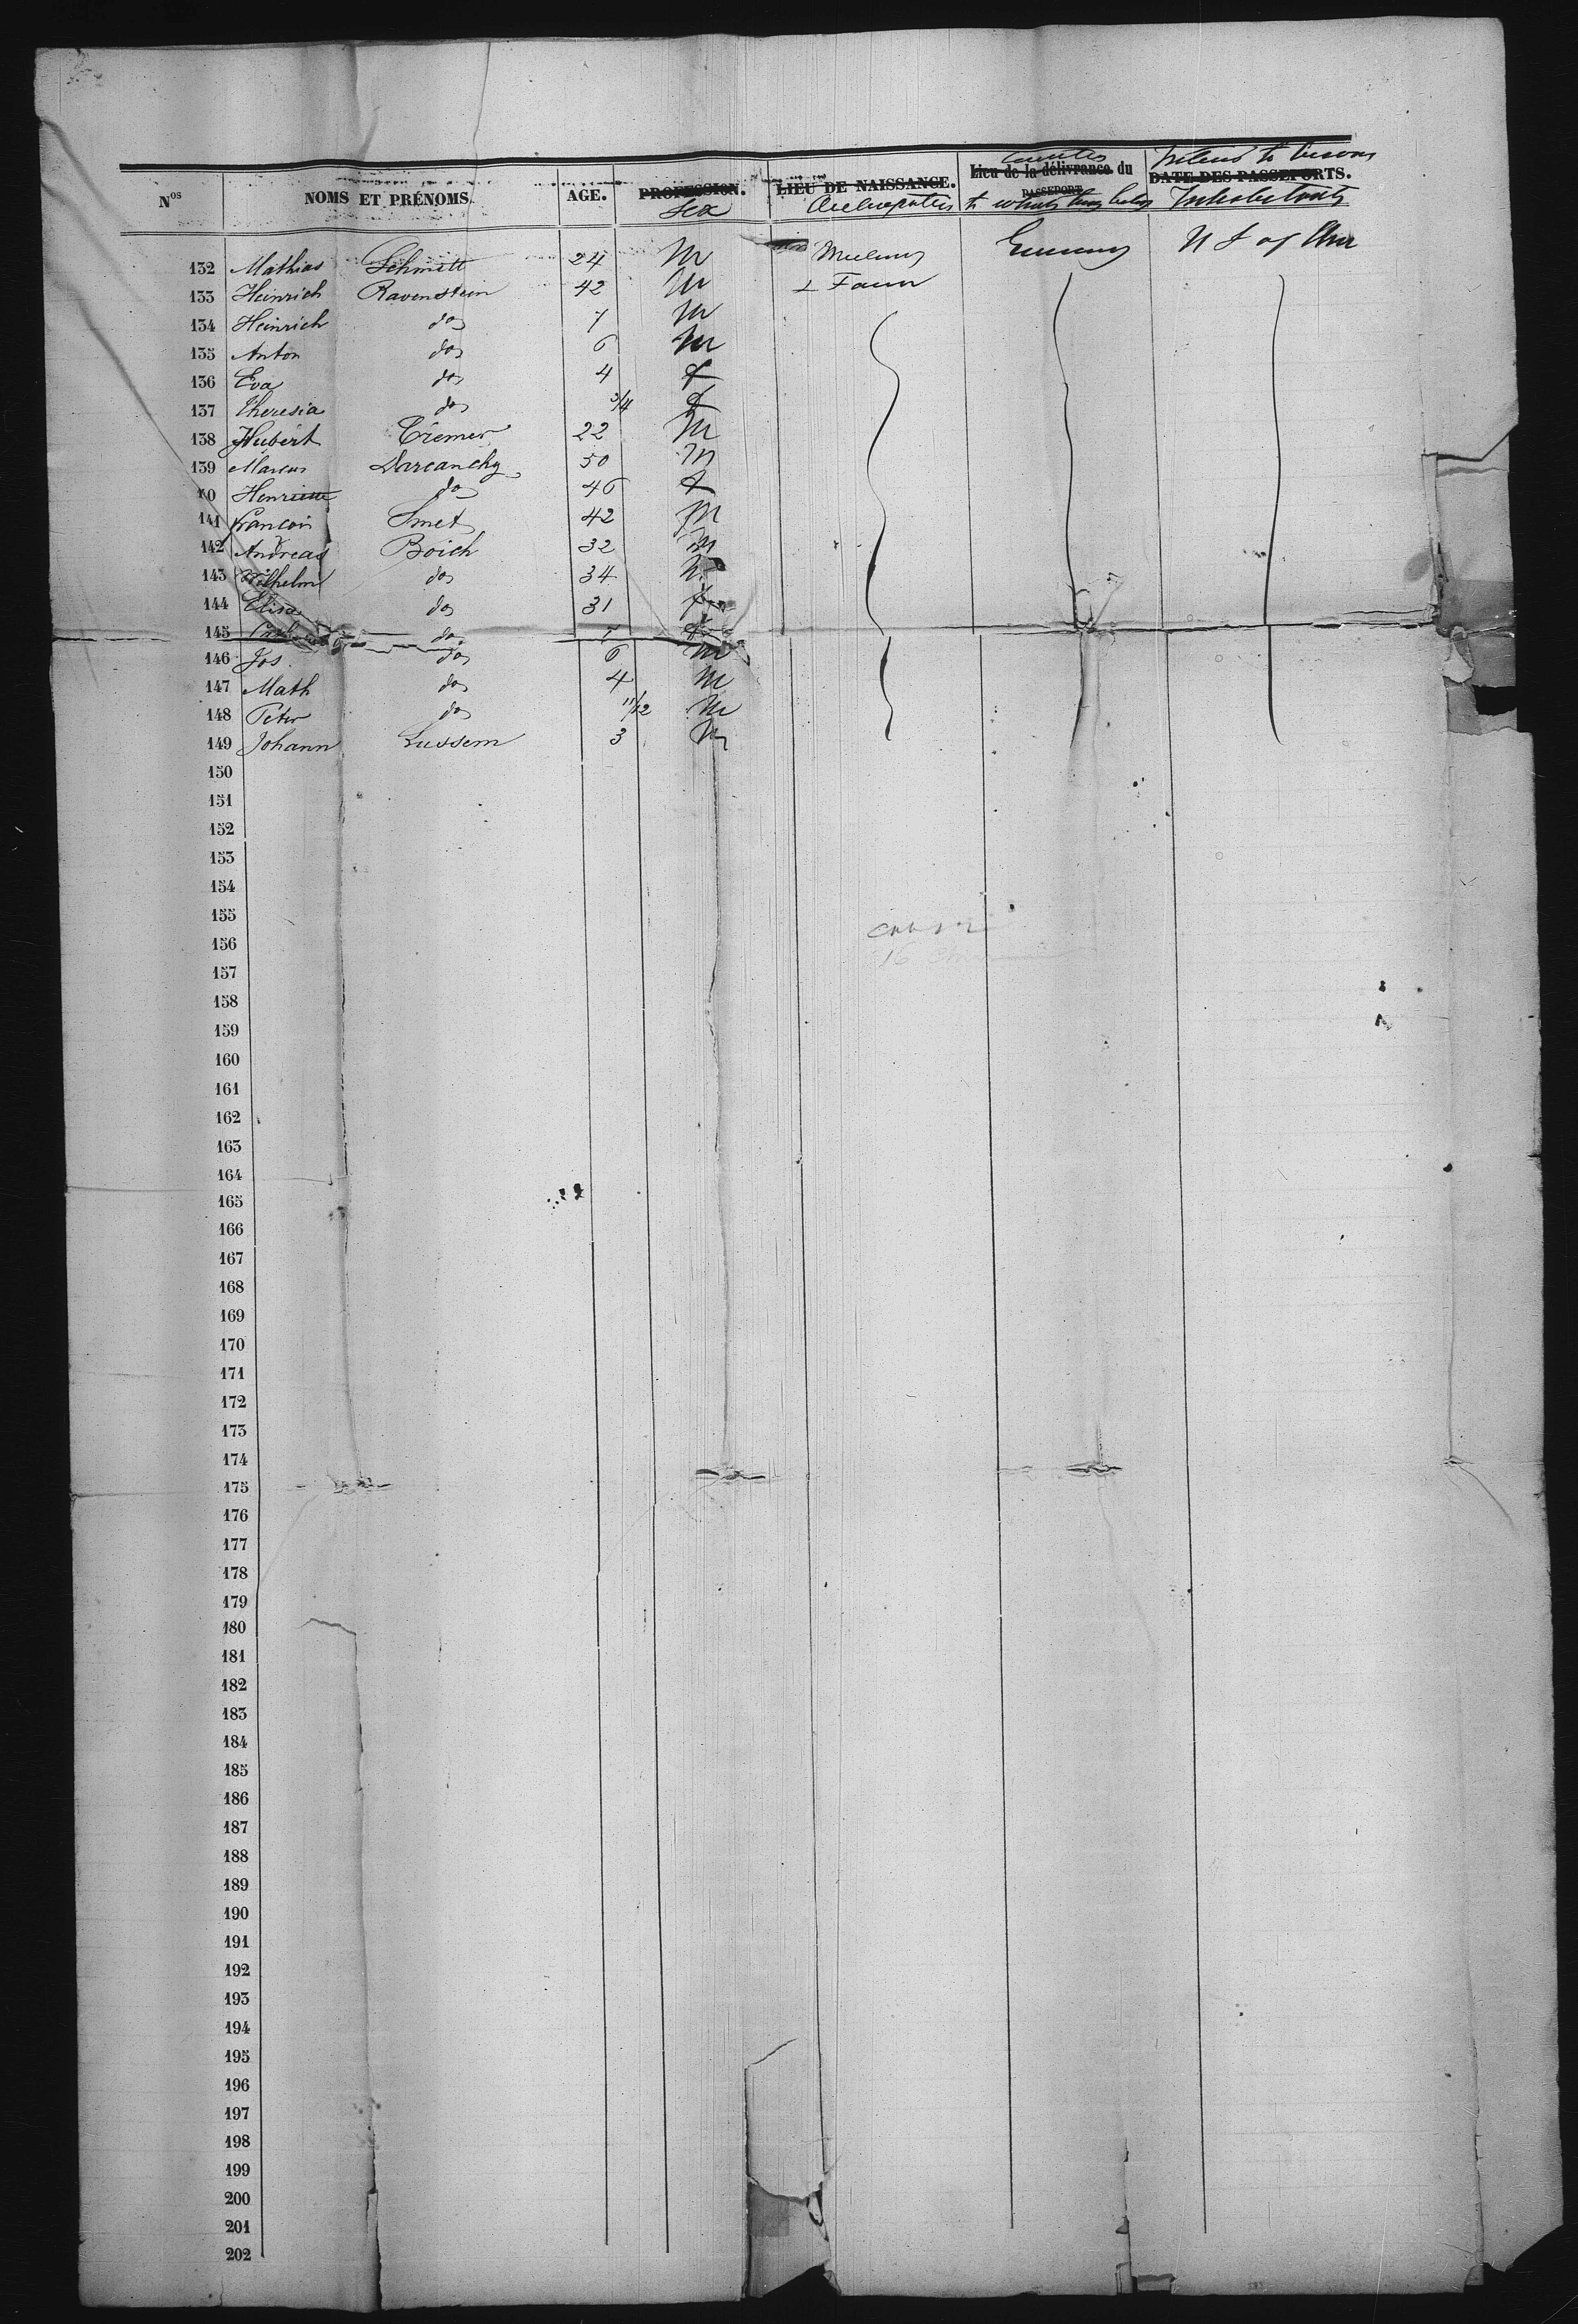 Countries Intend to become
Nos NOMS ET PRÉNOMS. AGE. PROFESSION. LIEU DE NAISSANCE. Lieu de la délivrance du PASSEPORT DATE DES PASSEPORTS.
Sex Occupation to which they belong Inhabitants
132 Mathias Schmitt 24 M Germany U S of Amr
133 Heinrich Ravenstein 42 M Farmr
134 Heinrich do 7 M
135 Anton do 6 M
136 Eva do 4 f
137 Theresia do 3/4 f
138 Hubert Cremer 22 M
139 Marcus Darcanchy 50 M
40 Henriette do 46 f
141 Francois Smet 42 M
142 Andreas Boich 32 M
143 Wilhelm do 34 M
144 Elisa do 31 f
145 do 7 f
146 Jos do 6 M
147 Math do 4 M
148 Peter do 11/12 M
149 Johann Lussem 3 M
150
151
152
153
154
155
156
157
158
159
160
161
162
163
164
165
166
167
168
169
170
171
172
173
174
175
176
177
178
179
180
181
182
183
184
185
186
187
188
189
190
191
192
193
194
195
196
197
198
199
200
201
202